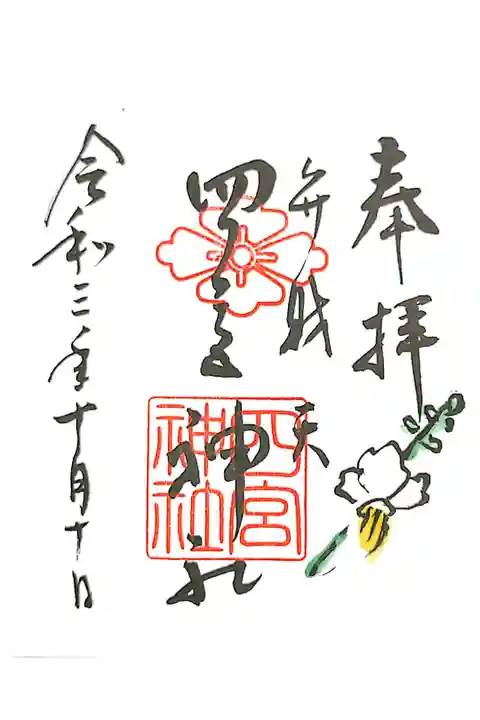 奉拝
弁財天
四宮神社
四宮
神社
令和三年十月十日